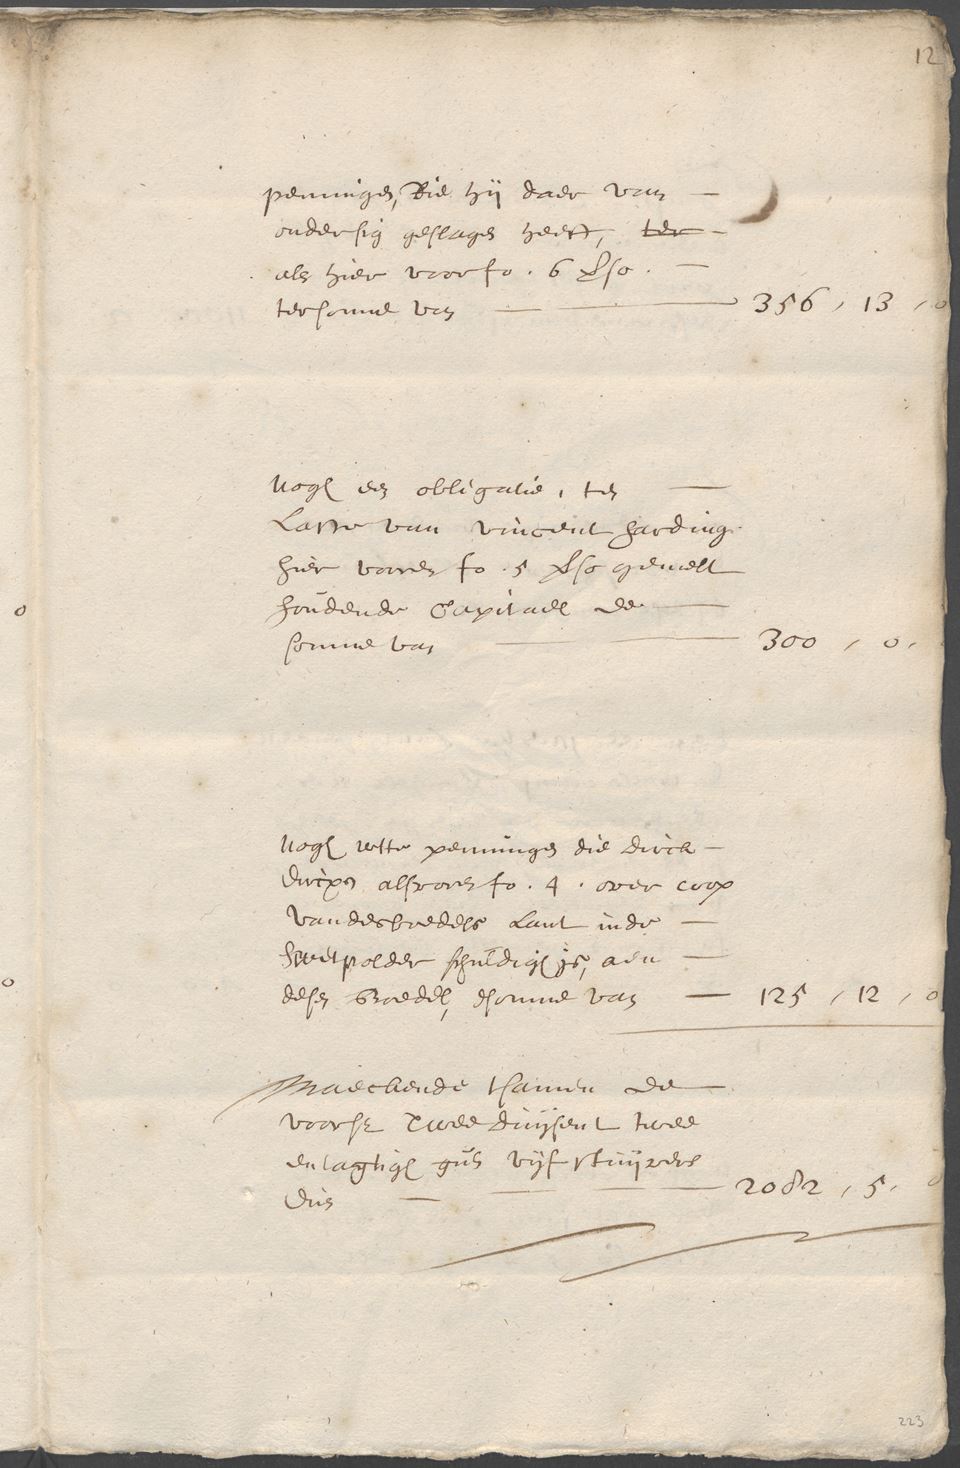 12
penningen, die hij daer van —
ondersig geslagen heeft, ter —
als hier voor fo. 6 vso. —
tersomme van — 356, 13, 0
Noch een obligatie, ten —
Laste van Vincent harding
hier voren fo. 5 vso gemelt
houdende Capitael de —
somme van — 300, 0,
Noch sette penningen die dirck —
dircxs alsvoren fo. 4. over coop
van desboedels Lant inde —
polder schuldich is, aen —
desen Boedel, dsomme van — 125, 12, 0
Maeckende tsamen de —
voorsz Twee duijsent twee
entachtich guls vijf stuijvers
dus — 2082, 5, 0
223